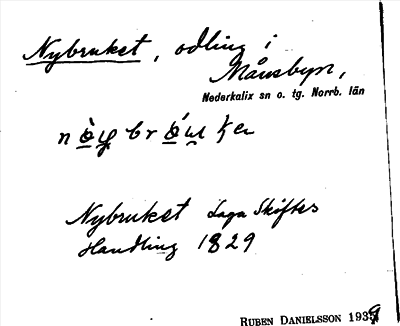 Nybruket, odling i
Månsbyn,
Nederkalix sn o. tg. Norrb. län
Nybruket Laga Skiftes
Handling 1829
RUBEN DANIELSSON 1939